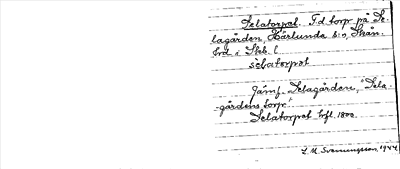 Selatorpet. F.d torp på Se-
lagården, Härlunda s:n, Skån.
hrd i Skb. l
sèlatorpet
Jämf. Selagården, "Sela-
gårdens torp"
Selatorpet hfl. 1800.
L. M. Svenungsson, 1944